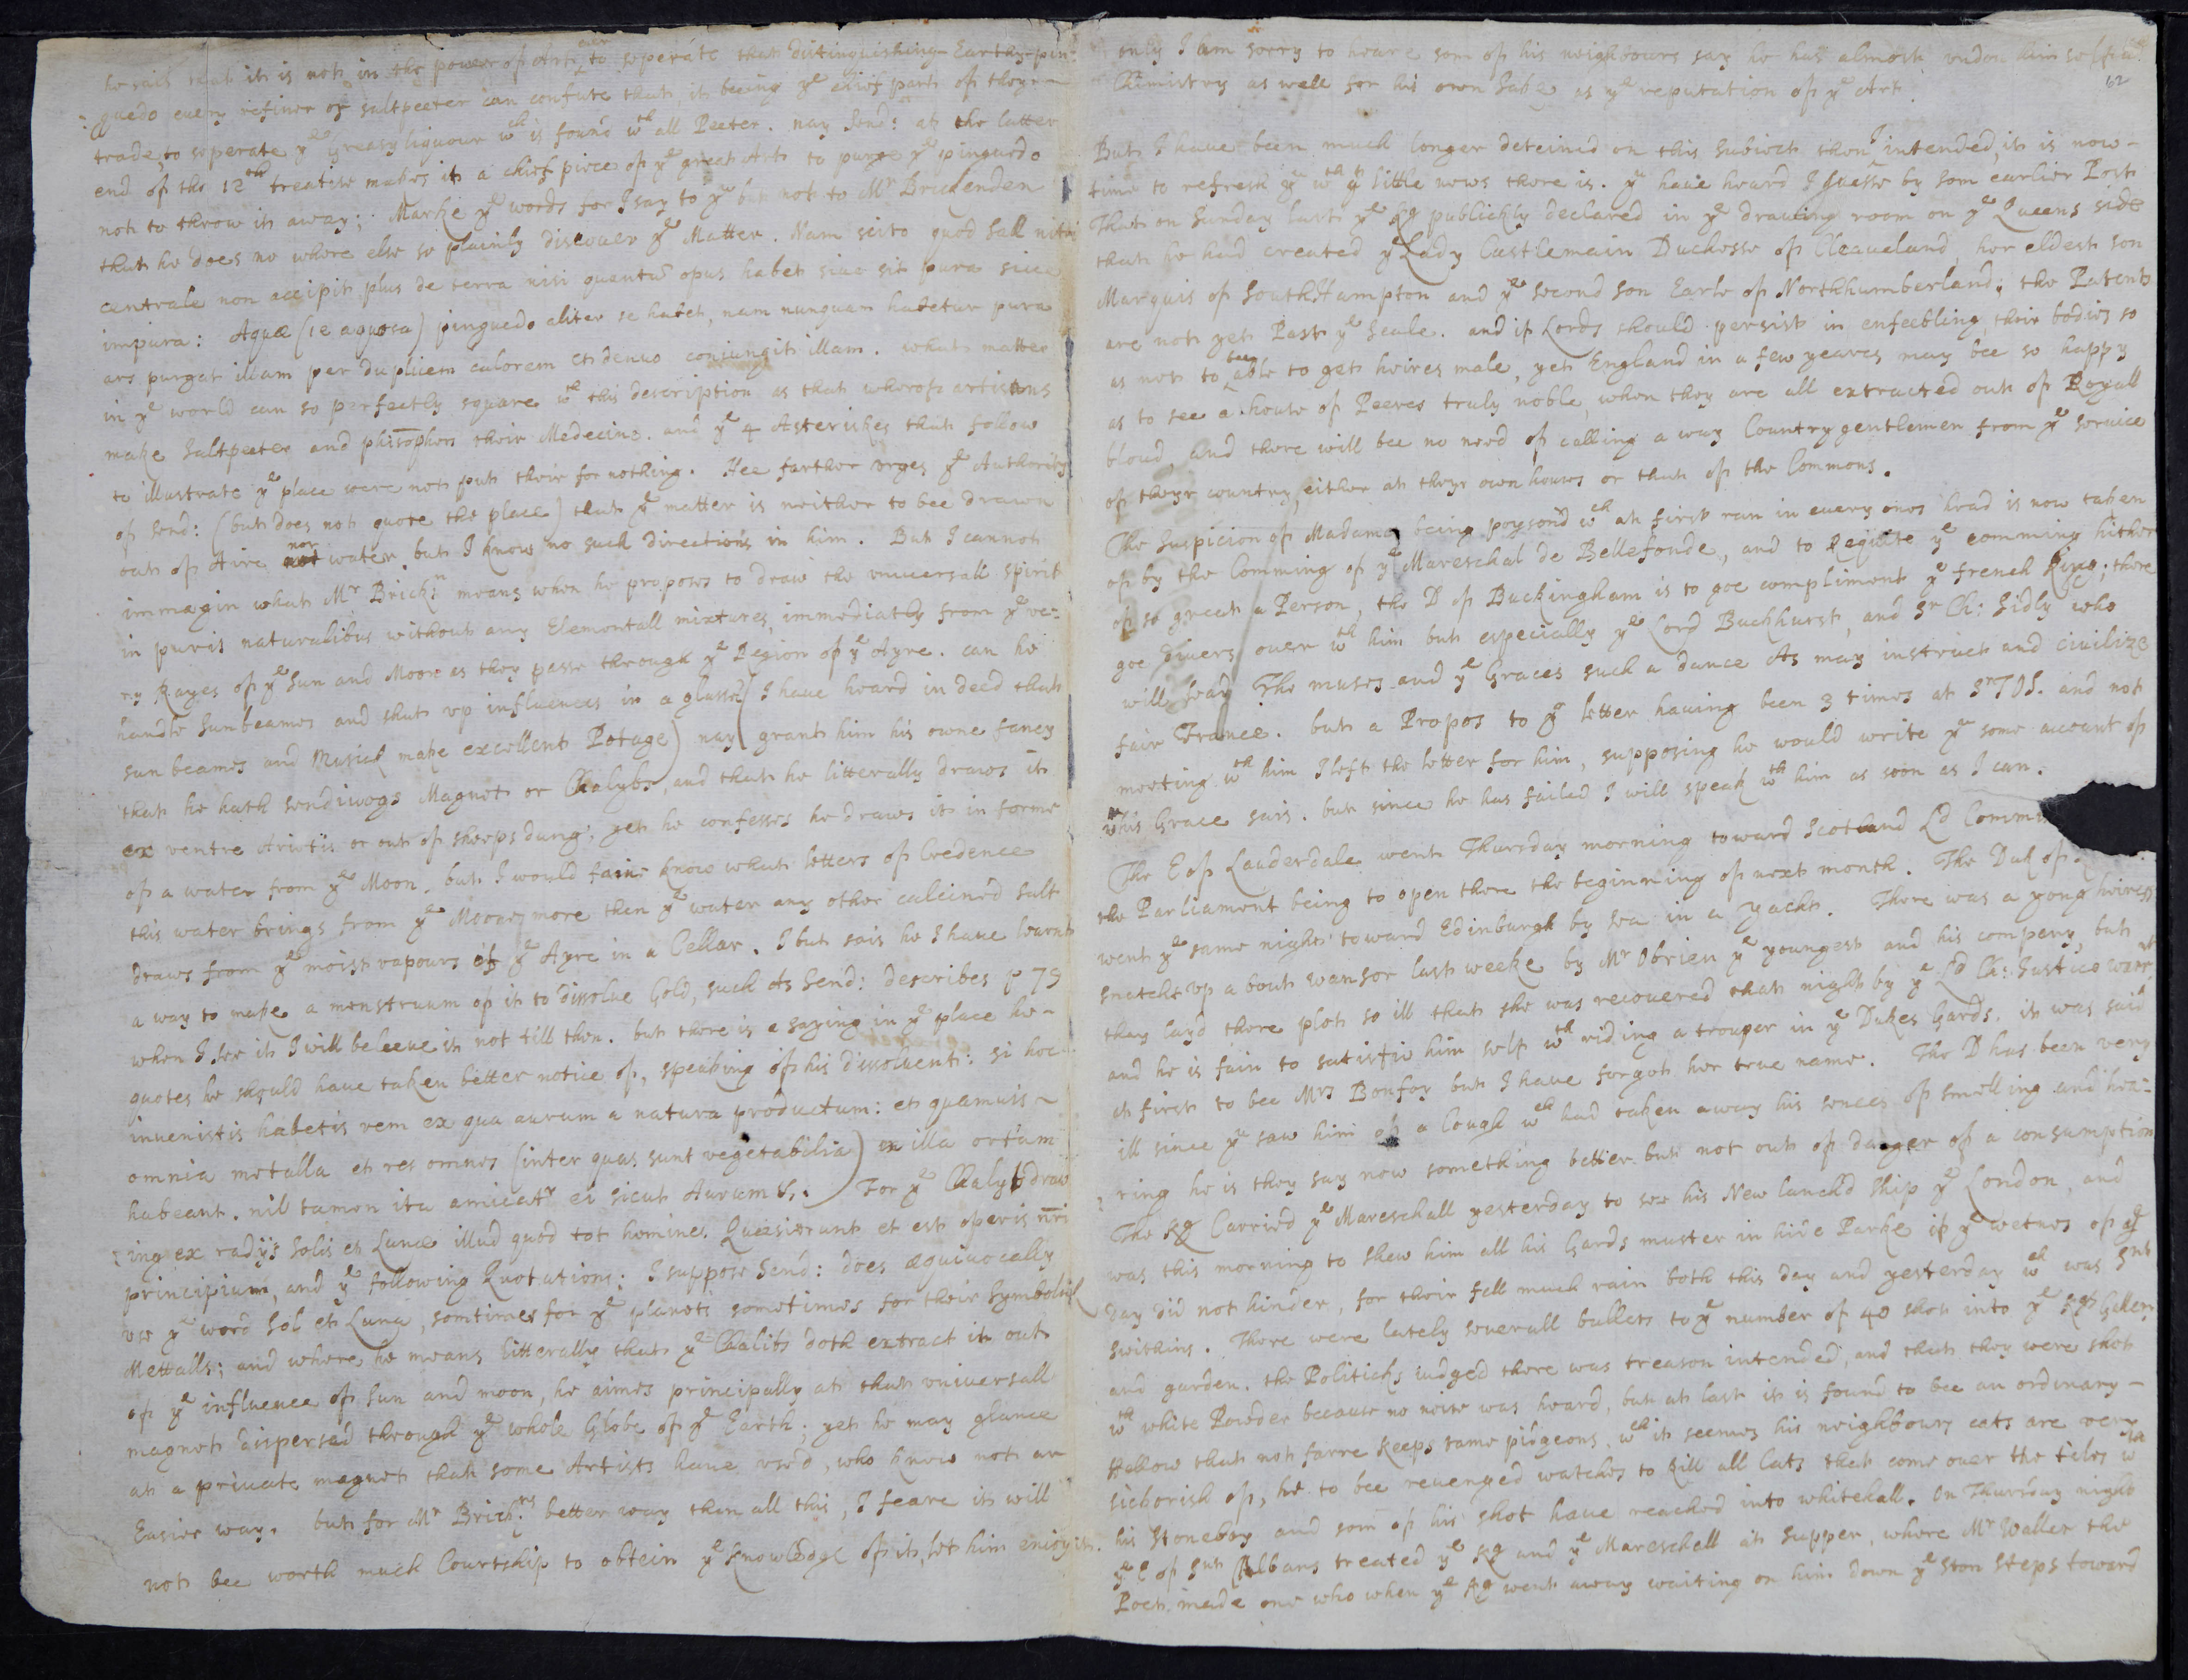 he said that it is not in the power of Art ever to seperate that distinguishing Earthy pin-
guedo every refiner of saltpeeter can confute that it beeing yͤ chief part of theyr
trade, to seperate yͤ greasy liquour wᶜʰ is found wᵗʰ all Peeter. nay Send: at the latter
end of the 12ᵗʰ treatise makes it a chief piece of yͤ great Art to purge yͤ pinguedo
not to throw it away; Marke yͤ words for I say to yᵘ but not to Mʳ Brickenden
that he does no where else so plainly discover yͤ Matter. Nam scito quod Sall nitri
centrale non accipit plus de terra nisi quantū opus habet sive sit pura sive
impura: Aquæ (ie aquosa) pinguedo aliter se habet, nam nunquam habetur pura
ars purgat illam per duplicem calorem et denuo coniungit illam. what matter
in yͤ world can so perfectly square wᵗʰ this description as that wherof artisans
make Saltpeeter and phisophers their Medecine. and yͤ 4 Asteriskes that follow
to illustrate yͤ place were not put their for nothing. Hee farther urges yͤ Authority
of Send: (but does not quote the place) that yͤ matter is neither to bee drawn
out of Aire nor water, but I know no such directions in him. But I cannot
immagin what Mʳ Brickⁿ means when he proposes to draw the universall spirit
in puris naturalibus without any Elementall mixtures, immediatly from yͤ ve-
ry Rayes of yͤ Sun and Moon as they passe through yͤ Region of yͤ Ayre. can he
handle Sunbeames and shut up influences in a glasse (I have heard in deed that
sun beames and Musick make excellent Potage) nay grant him his owne fancy
that he hath Sendivogs Magnet or Chalybs, and that he litterally draws it
ex ventre Arietis or out of sheeps dung, yet he confesses he draws it in forme
of a water from yͤ Moon. but I would faine know what letters of Credence
this water brings from yͤ Moone, more then yͤ water any other calcined salt
draws from yͤ moist vapours of yͤ Ayre in a Cellar. I but sais he I have learnt
a way to make a menstruum of it to dissolve Gold, such As Send: describes p 79
when I see it I will beleeve it not till then. but there is a saying in yͤ place he
quotes he should have taken better notice of, speaking of his dissolvent: si hoc
invenistis habetis rem ex qua aurum a natura productum: et quamvis
omnia metalla et res omnes (inter quas sunt vegetabilia) ex illa ortum
habeant. nil tamen ita amicatʳ ei sicut Aurum &. For yͤ Chalybs draw
ing ex radijs Solis et Lunæ illud quod tot homines Quæsierunt et est operis nr̄i
principium, and yͤ following Quotations: I suppose Send: does æquivocally
use yͤ word Sol et Luna, somtimes for yͤ planets sometimes for their Symbolick
Mettalls; and where he means litterally that yͤ Chalibs doth extract it out
of yͤ influence of Sun and moon, he aimes principally at that universall
magnet dispersed through yͤ whole Globe of yͤ Earth; yet he may glance
at a private magnet that some Artists have used, who know not an
Easier way. but for Mʳ Brickⁿˢ better way then all this, I feare it will
not bee worth much Courtship to obtein yͤ knowledge of it, let him enioy it.
only I am sorry to heare som of his neighbours say he has almost undon him self
Chimistry as well for his own Sake as yͤ reputation of yͤ Art.
62
But I have been much longer deteined on this Subiect then I intended, it is now
time to refresh yᵘ wᵗʰ yͤ little news there is. yᵘ have heard I guesse by som earlier Post
That on Sunday last yͤ Kg publickly declared in yͤ drawing room on yͤ Queens side
that he had created yͤ Lady Castlemain Duchesse of Cleaveland, her eldest son
Marquis of SouthHampton and yͤ second son Earle of Northhumberland; the Patents
are not yet Past yͤ Seale. and if Lords should persist in enfeebling their bodies so
as not to bee able to get heires male, yet England in a few yeares may bee so happy
as to see a house of Peeres truly noble, when they are all extracted out of Royall
bloud, and there will bee no need of calling a way Country gentlemen from yͤ service
of theyr country, either at theyr own houses or that of the Commons.
The Suspicion of Madames being poysond wᶜʰ at first ran in every ones head is now taken
of by the Comming of yͤ Mareschal de Bellefonde, and to Requite yͤ comming hither
of so great a Person, the D of Buckingham is to goe compliment yͤ french King; there
goe divers over wᵗʰ him but especially yͤ Lord Buckhurst, and Sʳ Ch: Sidly who
will lead The muses and yͤ Graces such a dance As may instruct and civilize
fair France. but a Propos to yͤ letter having been 3 times at Sʳ TOS. and not
meeting wᵗʰ him I left the letter for him, supposing he would write yᵘ some account of
his Grace sais. but since he has failed I will speak wᵗʰ him as soon as I can.
The E of Lauderdale went Thursday morning toward Scotland Ld Comm
the Parliament being to open there the beginning of next month. The Duk of
went yͤ same night toward Edinburgh by sea in a yacht. There was a yong heiress
snatcht up a bout wansor last weeke by Mʳ Obrien yͤ youngest and his company, but
they layd there plot so ill that she was recovered that night by yͤ Ld Ch: Justice warrᵗ
and he is fain to satisfie him self wᵗʰ riding a trouper in yͤ Dukes Gards. it was said
at first to bee Mʳˢ Bonfoy but I have forgot her true name. The D has been very
ill since yᵘ saw him of a Cough wᶜʰ had taken away his sences of smelling and hea-
ring he is they say now something better but not out of danger of a consumption
The Kg Carried yͤ Mareschall yesterday to see his New lanchd Ship yͤ London, and
was this morning to shew him all his Gards muster in hide Parke if yͤ wetnes of yͤ
day did not hinder, for their fell much rain both this day and yesterday wᶜʰ was Sⁿᵗ
Swithins. There were lately severall bullets to yͤ number of 40 shot into yͤ Kgs Gallery
and garden. the Politicks iudged there was treason intended, and that they were shot
wᵗʰ white Powder because no noise was heard, but at last it is found to bee an ordinary
fellow that not farre keeps tame pidgeons, wᶜʰ it seemes his neighbours cats are very
licborish of, he to bee revenged watches to kill all Cats that come over the tiles wᵗʰ
his Stonebow and som of his shot have reached into whitehall. On Thursday night
yͤ E of Sⁿᵗ Albans treated yͤ Kg and yͤ Mareschall at Supper, where Mʳ Waller the
Poet made one who when yͤ Kg went away waiting on him down yͤ ston steps toward